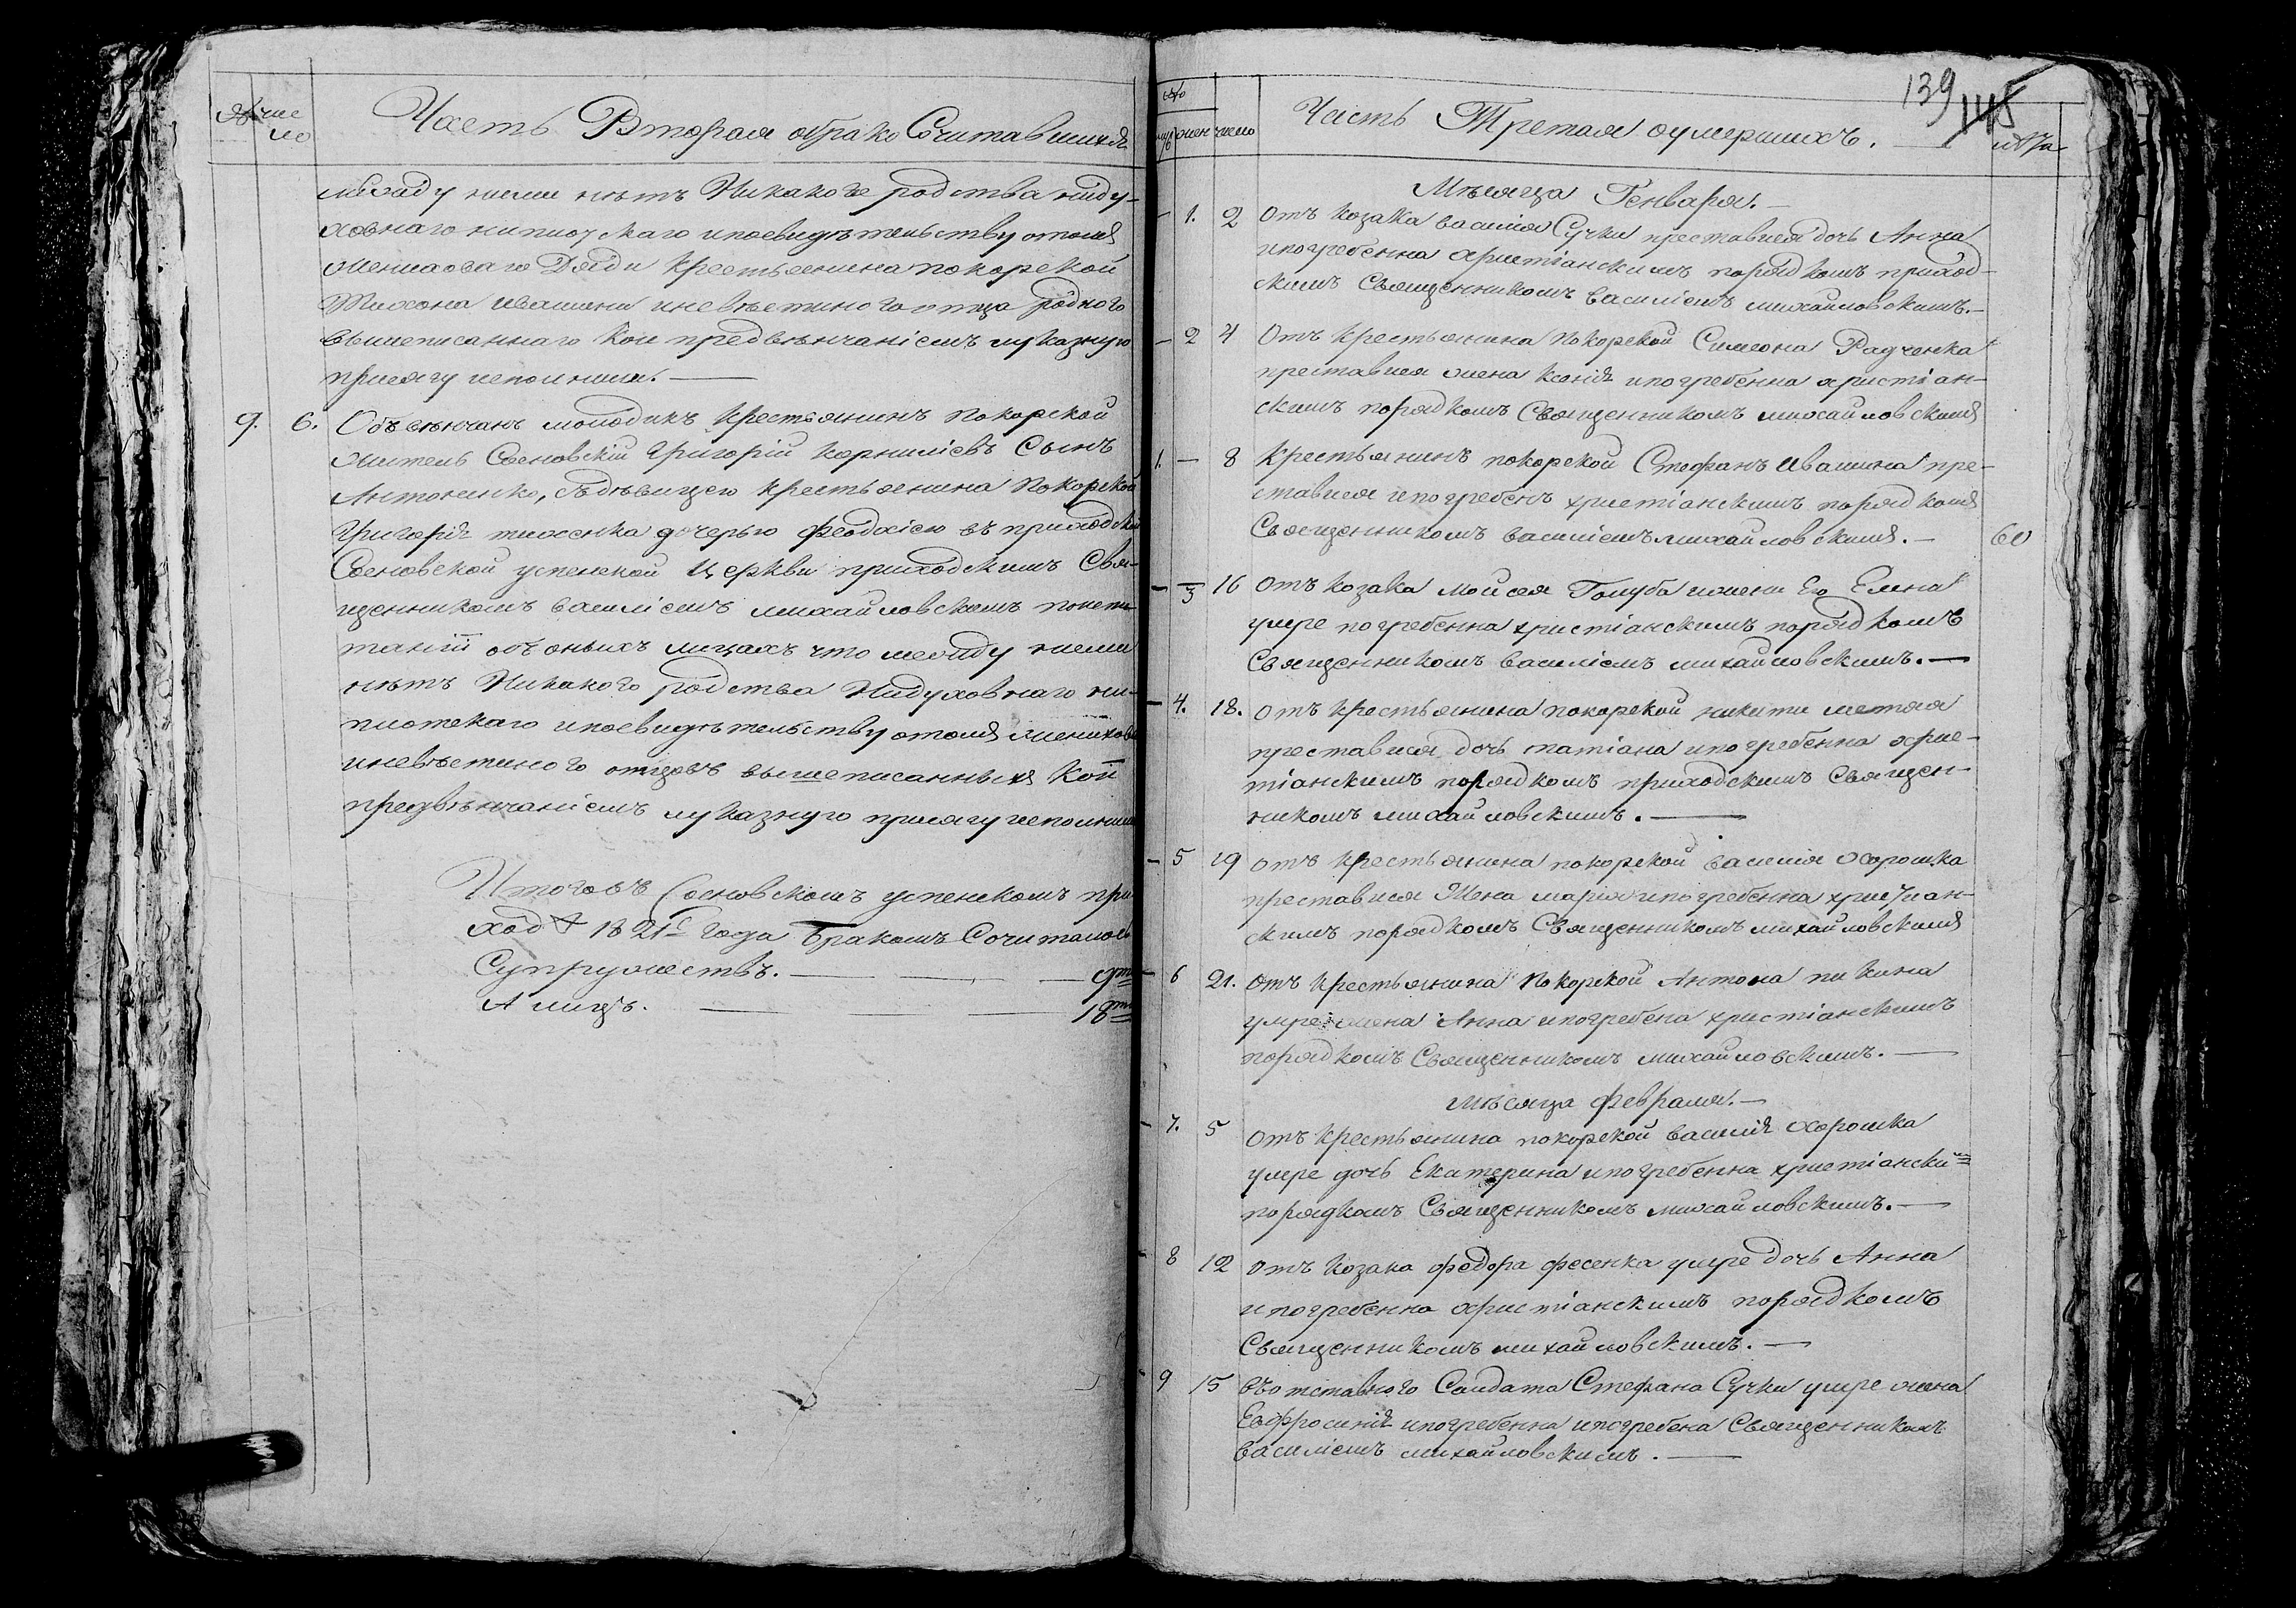 № чис
ло
Часть Вторая обрако Сочитавшихся
между ними нѣтъ Никакого родства ниду-
ховнаго ниплоцкаго ипосвидѣтельству отомъ
жениховаго Дяди крестьянина покорской
Тихона ивашини иневѣстиного отца родного
вышеписаннаго Кои предвѣнчаніемъ иуказную
присягу исполнили. —
9. 6. Объвѣнчанъ молодикъ Крестьянинъ Покорской
житель Сосновскій Григорій Корниліевъ Сынъ
Антоненко, Здѣвицею крестьянина Покорской
Григорія тихенка дочерью Феодосіею въ приходской
Сосновской успенской Церкви приходскимъ Свя-
щенникомъ василіемъ михайловскимъ
объ оныхъ лицахъ что между ними
нѣтъ Никакого родства Нидуховнаго ни-
плотскаго ипосвидѣтельству отомъ жениховых
иневѣстиного отцовъ вышеписанныхъ Кои
предвѣнчаніемъ иуказную присягу исполнили
Итого въ Сосновскомъ успенскомъ при-
ходѣ 1821 года Бракомъ Сочиталось
Супружествъ. — — — 9
А лицъ. — — — 18
139 145
муж жен число
Часть Третая оумершихъ. —
лѣта
Мѣсяца Генваря. —
— 1. 2 Отъ Козака василия Сучки преставися дочь Анна
ипогребенна христіанскимъ порядкомъ приход-
скимъ Священникомъ василіемъ михайловскимъ. —
— 2 4 Отъ Крестьянина Покорской Симеона Радченка
преставися жена Ксенія ипогребенна христіан-
скимъ порядкомъ Священникомъ михайловскимъ
1. — 8 Крестьянинъ покорской Стефанъ Ивашина пре-
ставися ипогребенъ христіанскимъ порядкомъ
Священникомъ василіемъ михайловскимъ. — 60
— 3 16 Отъ козака мойсея Голуба жена Его Елена
умре погребенна христіанскимъ порядкомъ
Священникомъ василіемъ михайловскимъ. —
— 4. 18. Отъ крестьянина покорской никити
преставися дочь татіана ипогребенна хрис-
тіанскимъ порядкомъ приходскимъ Священ-
никомъ михайловскимъ. —
— 5 19 Отъ крестьянина покорской василія Хорошка
преставися Жена марія ипогребенна христиан-
скимъ порядкомъ Священникомъ михайловскимъ
— 6 21. Отъ Крестьянина Покорской Антона пикина
умре жена Анна ипогребена христіанскимъ
порядкомъ Священникомъ михайловскимъ. —
Мѣсяца февраля. —
— 7. 5 Отъ крестьянина покорской василія хорошка
умре дочь Екатерина ипогребенна христіански
порядкомъ Священникомъ михайловскимъ. —
— 8 12 Отъ козака федора фесенка умре дочь Анна
ипогребенна христіанскимъ порядкомъ
Священникомъ михайловскимъ. —
— 9 15 въотставного Солдата Стефана Сучки умре жена
Евфросинія ипогребенна ипогребена Священникомъ
василіемъ михайловскимъ. —